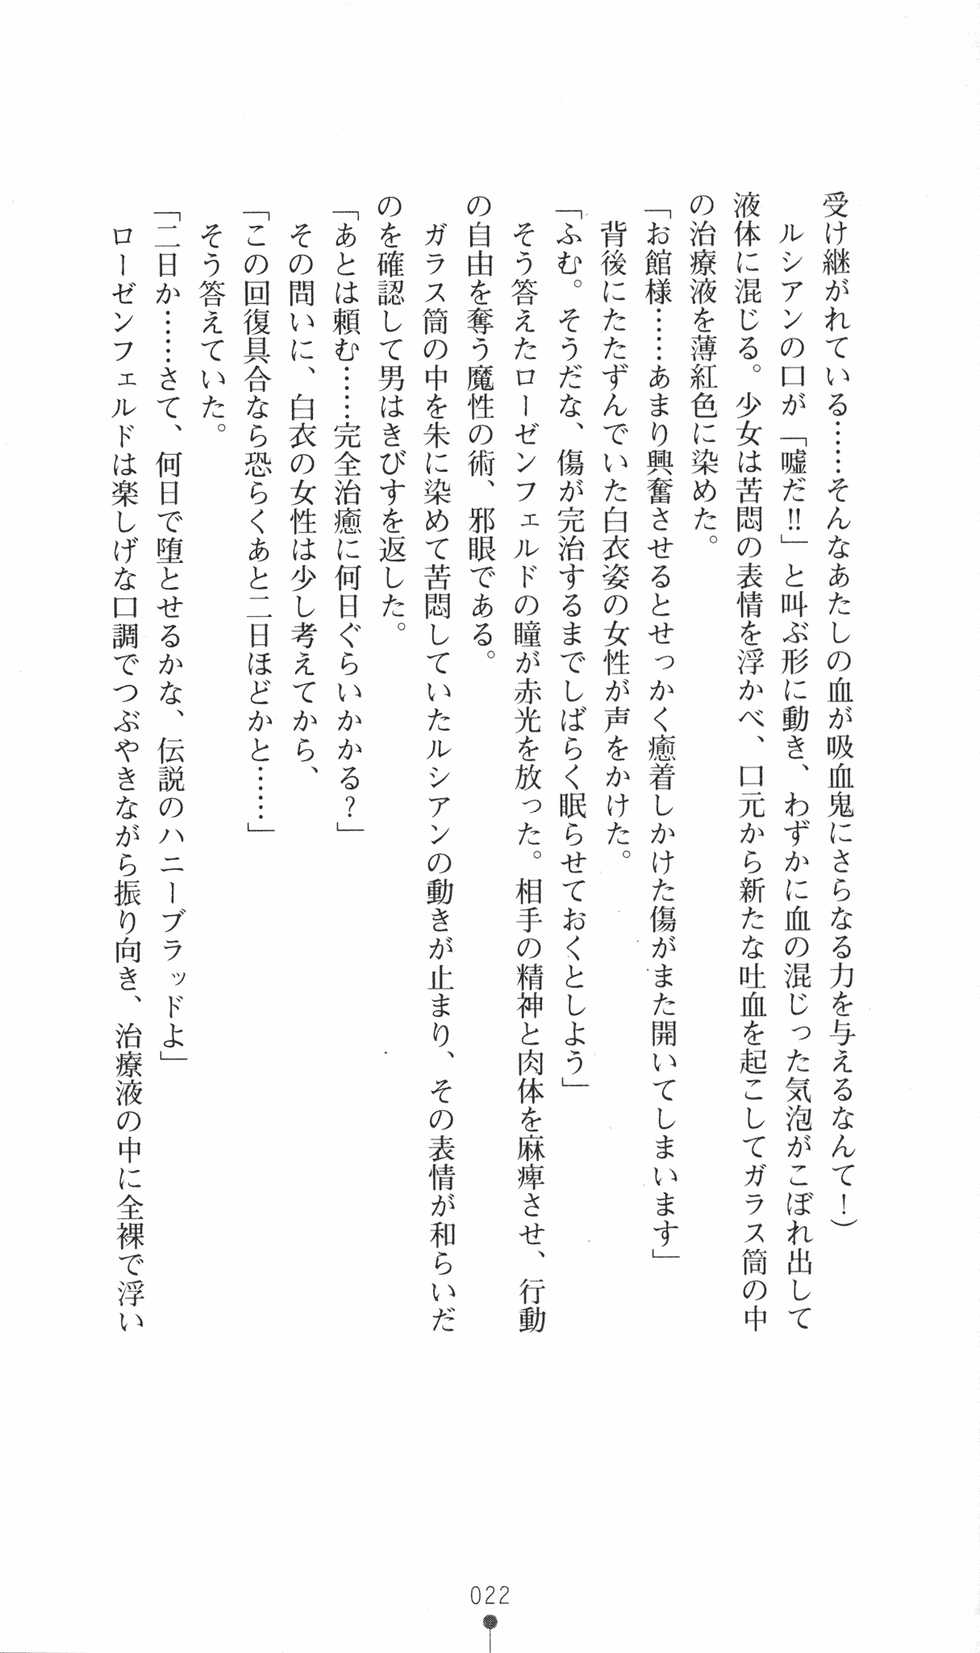 受け継がれている……そんなあたしの血が吸血鬼にさらなる力を与えるなんて！）
ルシアンの口が「嘘だ!!」と叫ぶ形に動き、わずかに血の混じった気泡がこぼれ出して
液体に混じる。少女は苦悶の表情を浮かべ、口元から新たな吐血を起こしてガラス筒の中
の治療液を薄紅色に染めた。
「お館様……あまり興奮させるとせっかく癒着しかけた傷がまた開いてしまいます」
背後にたたずんでいた白衣姿の女性が声をかけた。
「ふむ。そうだな、傷が完治するまでしばらく眠らせておくとしよう」
そう答えたローゼンフェルドの瞳が赤光を放った。相手の精神と肉体を麻痺させ、行動
の自由を奪う魔性の術、邪眼である。
ガラス筒の中を朱に染めて苦悶していたルシアンの動きが止まり、その表情が和らいだ
のを確認して男はきびすを返した。
「あとは頼む……完全治癒に何日ぐらいかかる？」
その問いに、白衣の女性は少し考えてから、
「この回復具合なら恐らくあと二日ほどかと……」
そう答えていた。
「二日か……さて、何日で堕とせるかな、伝説のハニーブラッドよ」
ローゼンフェルドは楽しげな口調でつぶやきながら振り向き、治療液の中に全裸で浮い
022